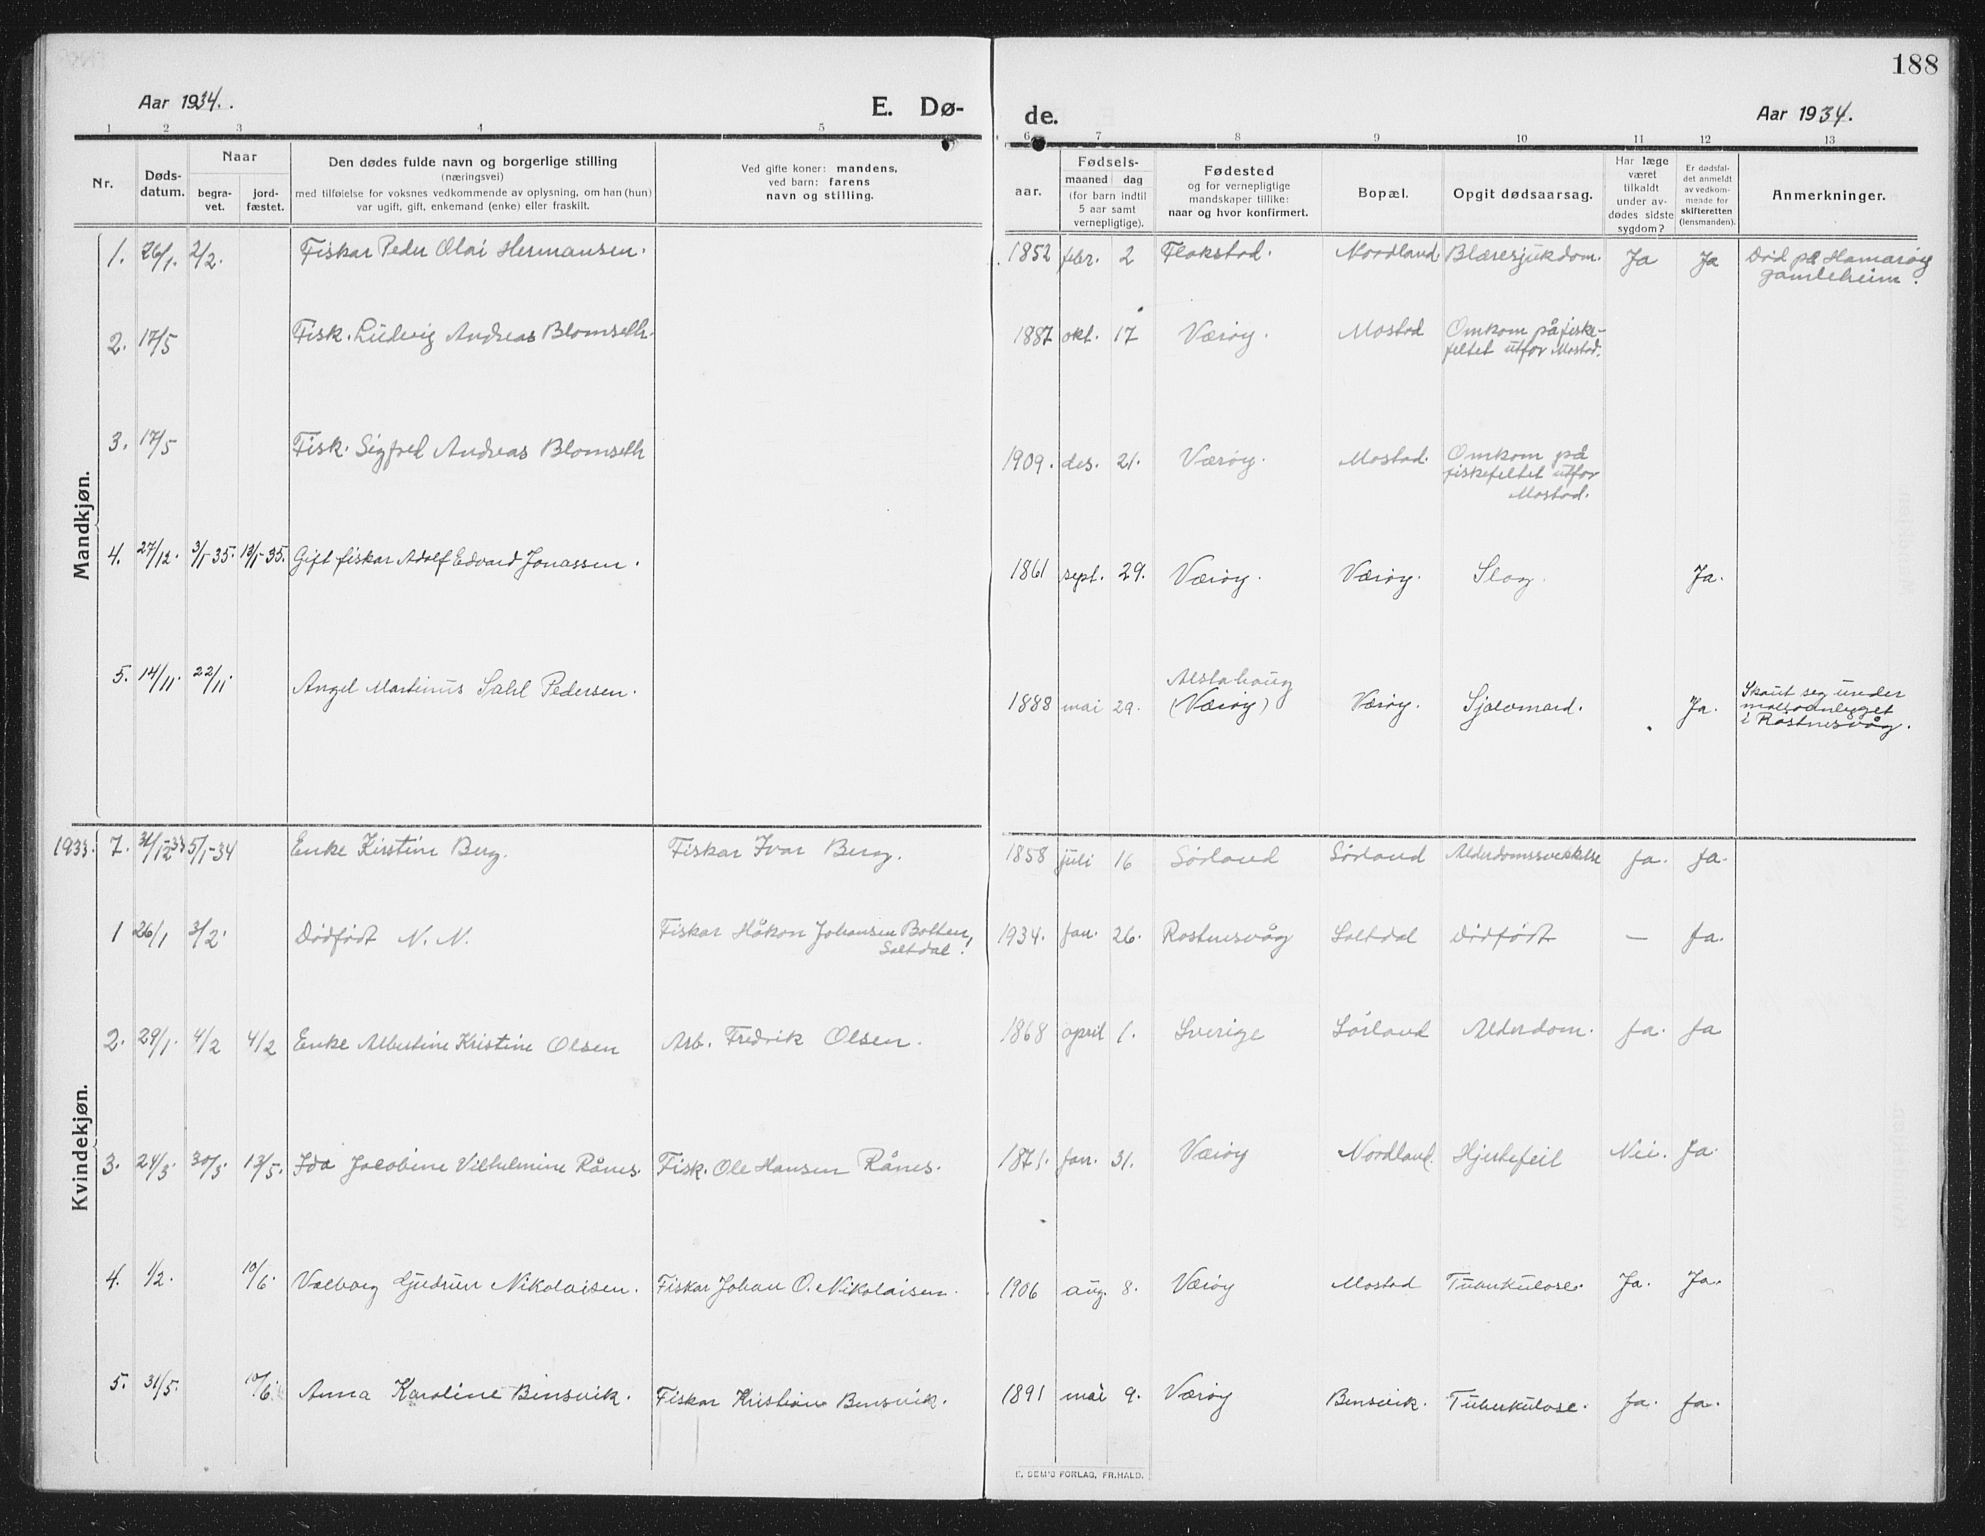 188
Aar 1934.
E. Dø-
de.
Aar 1934.
1 2 3 4 5 6 7 8 9 10 11 12 13
Nr.
Døds-
datum.
Naar
begra-
vet.
jord-
fæstet.
Den dødes fulde navn og borgerlige stilling
(næringsvei)
med tilføielse for voksnes vedkommende av oplysning, om han (hun)
var ugift, gift, enkemand (enke) eller fraskilt.
Ved gifte koner: mandens,
ved barn: farens
navn og stilling.
aar.
Fødsels-
maaned dag
(for barn indtil
5 aar samt
vernepligtige).
Fødested
og for vernepligtige
mandskaper tillike:
naar og hvor konfirmert.
Bopæl.
Opgit dødsaarsag.
Har læge
været
tilkaldt
under av-
dødes sidste
sygdom?
Er dødsfal-
det anmeldt
av vedkom-
mende for
skifteretten
(lensmanden).
Anmerkninger.
Mandkjøn.
1. 26/1. 2/2. Fiskar Peder Olai Hermansen. 1852 febr. 2 Flakstad. Nordland. Blæresjukdom. Ja Ja Død på Hamarøy
gamleheim.
2. 17/5 Fisk. Ludvig Andreas Blomseth. 1887 okt. 17 Værøy. Mostad Omkom på fiske-
feltet utfor Mostad.
3. 17/5 Fisk. Sigfred Andreas Blomseth 1909. des. 21. Værøy. Mostad. Omkom på
fiskefeltet utfor
Mostad.
4. 27/12. 3/1-35. 13/1-35. Gift fiskar Adolf Edvard Jonassen. 1861 sept. 29. Værøy. Værøy. Slag. Ja.
5. 14/11. 22/11. Angel Martinus Dahl Pedersen. 1888 mai 29. Alstahaug
(Værøy) Værøy. Sjølvmord. Ja. Skaut seg under
i Røstnesvåg.
Kvindekjøn.
1933. 7. 31/12-33 5/1-34 Enke Kirstine Berg. Fiskar Ivar Berg. 1858 juli 16 Sørland Sørland Alderdomssvækkelse Ja. Ja.
1 26/1 3/2. Dødfødt N. N. Fiskar Håkon Johansen Botten,
Saltdal! 1934. jan. 26. Røstnesvåg Saltdal Dødfødt — Ja.
2. 29/1. 4/2 4/2 Enke Albertine Kristine Olsen Arb. Fredrik Olsen. 1868 april 1. Sverige Sørland Alderdom. Ja. Ja
3. 24/3. 30/3 13/5. Ida Jacobine Vilhelmine Rånes. Fisk. Ole Hansen Rånes. 1871. jan. 31. Værøy Nordland. Hjertefeil Nei. Ja.
4. 1/2. 10/6. Valborg Gudrun Nikolaisen. Fiskar Johan O. Nikolaisen. 1906 aug. 8. Værøy Mostad Tuberkulose. Ja. Ja.
5. 31/5. 10/6. Anna Karoline Bensvik. Fiskar Kristian Bensvik. 1891 mai 9. Værøy Bensvik. Tuberkulose. Ja. Ja.
E. SEM'S FORLAG, FR.HALD.